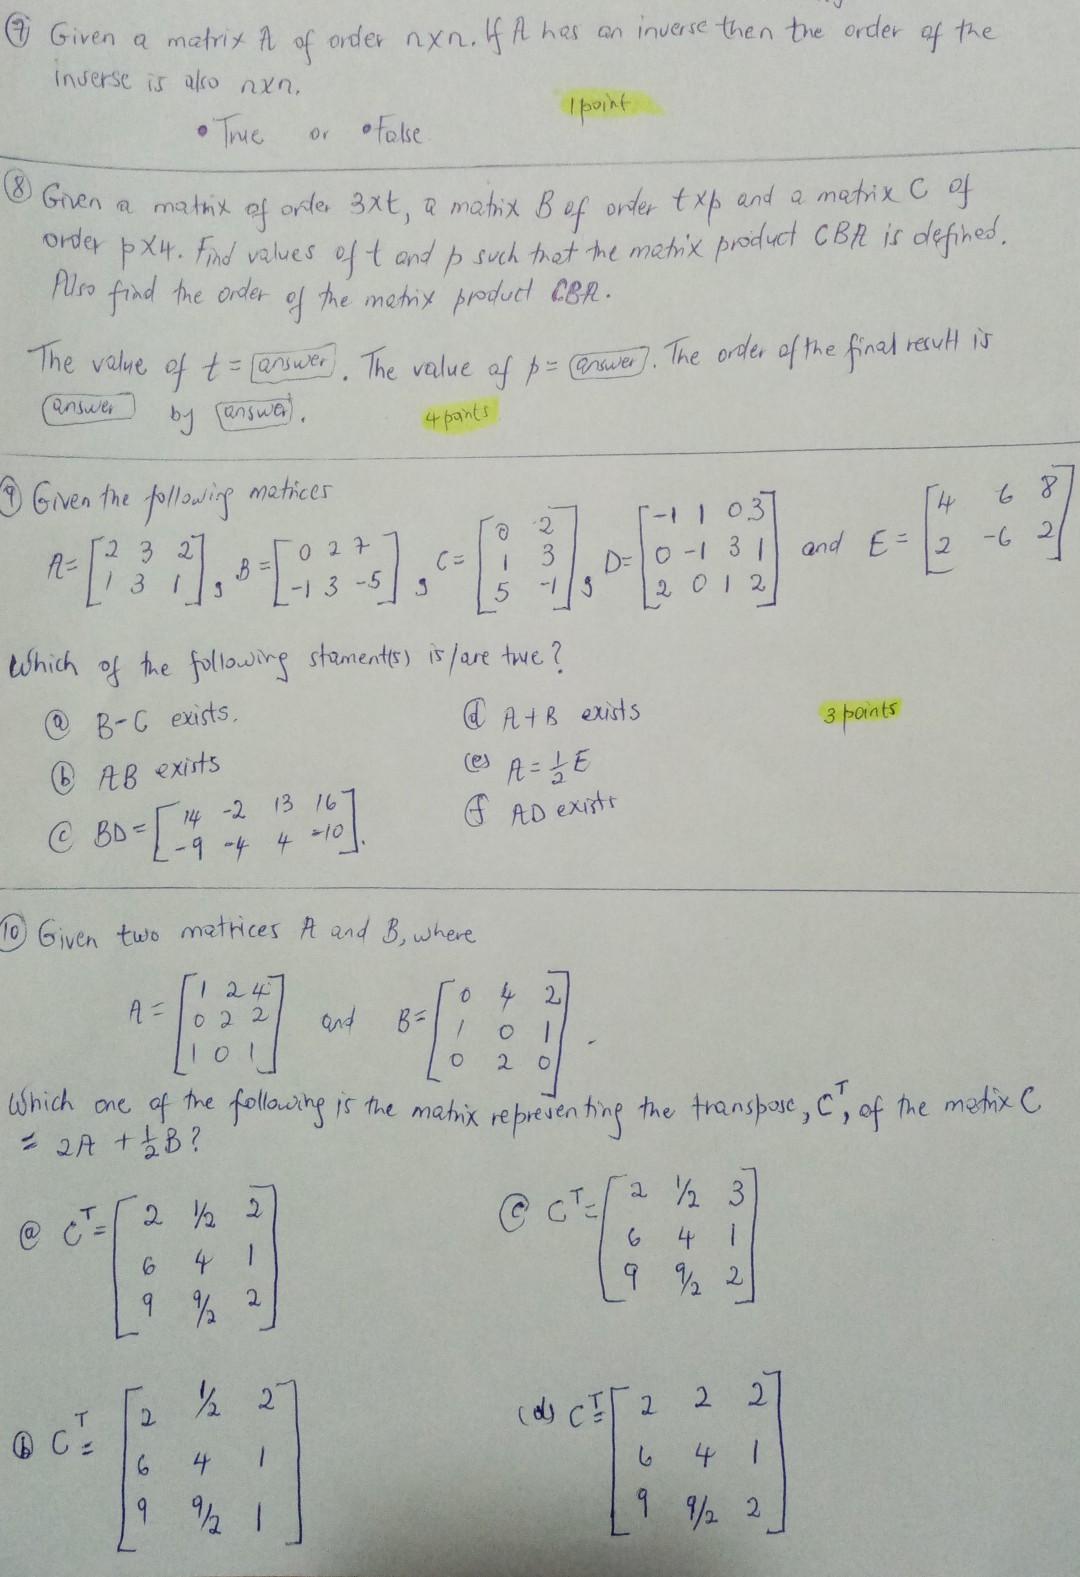 ⑦ Given a matrix A of order nxn. If A has an inverse then the order of the
inverse is also nxn.
1 point
• True or • False
⑧ Given a matrix of order 3xt, a matrix B of order txp and a matrix C of
order px4. Find values of t and p such that the matrix product CBA is defined.
Also find the order of the matrix product CBA.
The value of t = answer. The value of p = answer. The order of the final result is
answer by answer.
4 points
⑨ Given the following matrices
A = [2 3 2; 1 3 1], B = [0 2 7; -1 3 -5], C = [0 2; 1 3; 5 -1], D = [-1 1 0 3; 0 -1 3 1; 2 0 1 2] and E = [4 6 8; 2 -6 2]
Which of the following staments) is/are true?
ⓐ B-C exists. ⓓ A+B exists 3 points
ⓑ AB exists (e) A = 1/2 E
ⓒ BD = [14 -2 13 16; -9 -4 4 -10]. ⓕ AD exists
⑩ Given two matrices A and B, where
A = [1 2 4; 0 2 2; 1 0 1] and B = [0 4 2; 1 0 1; 0 2 0].
Which one of the following is the matrix representing the transpose, C^T, of the matrix C
= 2A + 1/2 B?
ⓐ C^T = [2 1/2 2; 6 4 1; 9 9/2 2] ⓒ C^T = [2 1/2 3; 6 4 1; 9 9/2 2]
ⓑ C^T = [2 1/2 2; 6 4 1; 9 9/2 1] (d) C^T = [2 2 2; 6 4 1; 9 9/2 2]